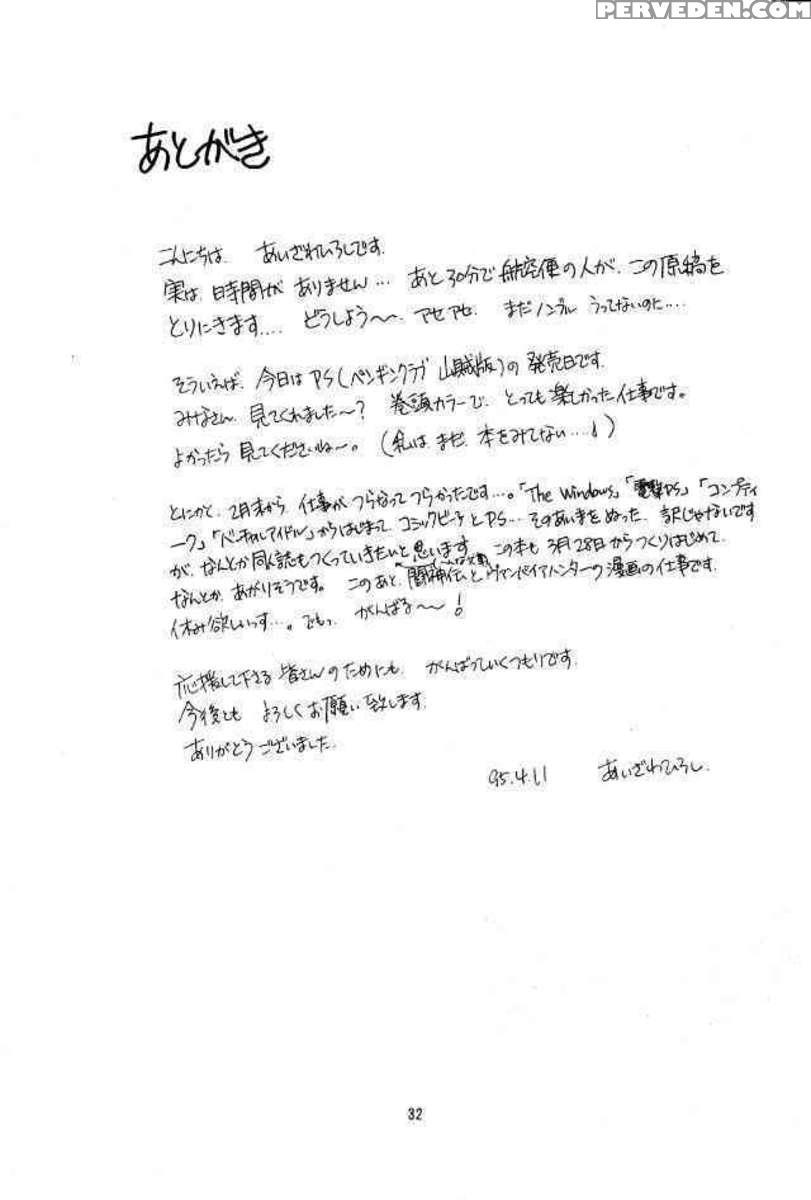 PERVEDEN.COM
あとがき
こんにちは. あいざわひろしです.
実は、時間がありません… あと30分で航空便の人が、この原稿を
とりにきます…. どうしよう〜. アセアセ. まだノンブルうってないのに….
そういえば、今日はPS(ペンギンクラブ山賊版)の発売日です.
みなさん、見てくれました〜? 巻頭カラーで、とっても楽しかった仕事です。
よかったら見てくださいね〜。(私は、まだ、本をみてない…!)
とにかく、2月末から、仕事がつらなってつらかったです…。「The Windows」「電撃PS」「コンプティ
ーク」「バーチャルアイドル」からはじまって、コミックピーチとPS… そのあいまをぬった、訳じゃないです
が、なんとか同人誌もつくっていきたいと思います. この本も3月28日からつくりはじめて、
なんとか、あがりそうです。 このあと、闘神伝とヴァンパイアハンターの漫画の仕事です.
休み欲しいっす…。でもっ、がんばる〜!
応援して下さる皆さんのためにも、がんばっていくつもりです.
今後とも よろしくお願い致します.
ありがとうございました.
95.4.11 あいざわひろし.
32